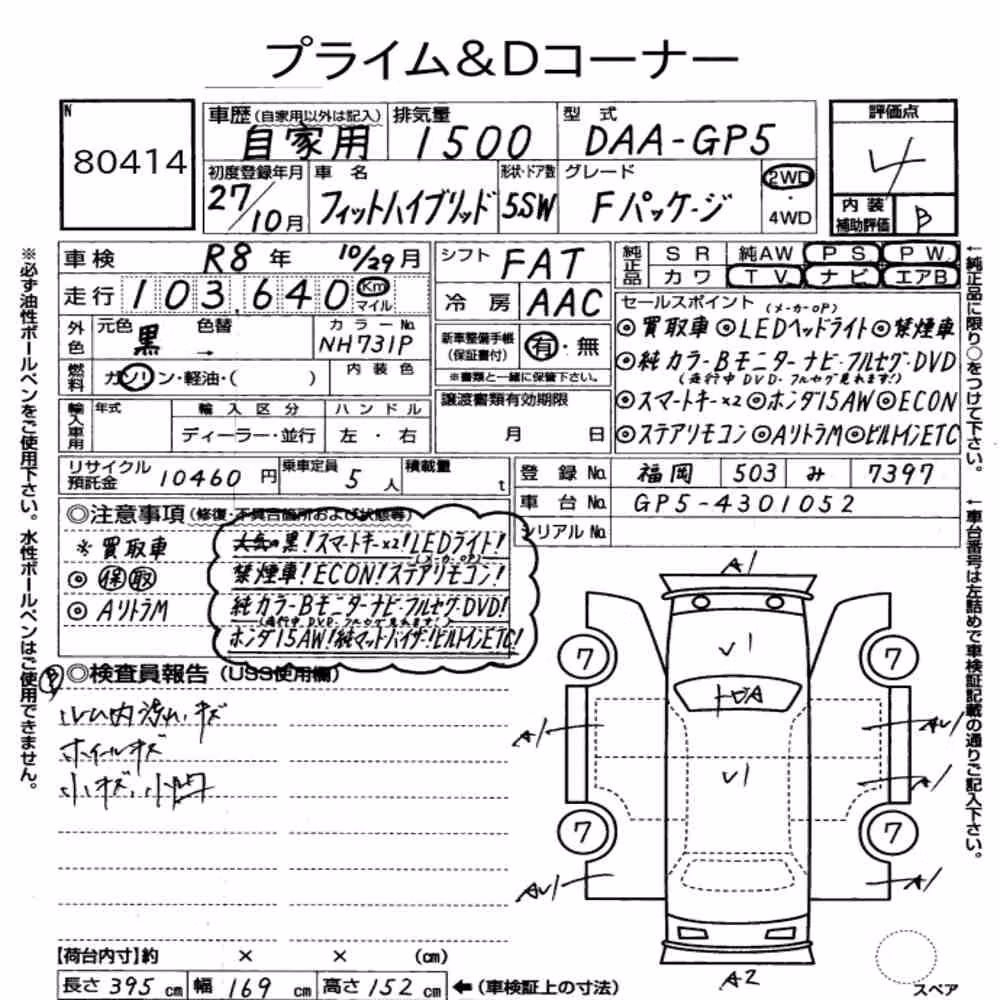 プライム&Dコーナー
N
80414
車歴(自家用以外は記入) 自家用
排気量 1500
型式 DAA-GP5
評価点 4
内装補助評価 B
初度登録年月 27/10月
車名 フィットハイブリッド
形状・ドア数 5.SW
グレード Fパッケージ
2WD
4WD
車検 R8年 10/29月
シフト FAT
純正品 SR 純AW PS PW
カワ TV ナビ エアB
走行 103,640 Km マイル
冷房 AAC
外色 元色 黒 色替 →
カラーNo. NH731P
新車整備手帳(保証書付) 有・無
※書類と一緒に保管下さい。
燃料 ガソリン・軽油・( )
内装色
セールスポイント (メーカーOP)
◎買取車 ◎LEDヘッドライト ◎禁煙車
◎純カラーBモニターナビ・フルセグ・DVD
(走行中DVD・フルセグ見れます!)
◎スマートキー×2 ◎ホンダ15AW ◎ECON
◎ステアリモコン ◎AリトラM ◎ビルトインETC
輸入車用 年式 輸入区分 ハンドル
ディーラー・並行 左・右
譲渡書類有効期限
月 日
リサイクル預託金 10460円
乗車定員 5人
積載量 t
登録No. 福岡 503 み 7397
車台No. GP5-4301052
シリアルNo.
◎注意事項(修復・不具合箇所および状態等)
※買取車
◎保取
◎AリトラM
人気の黒!スマートキー×2!LEDライト!
(メーカーOP)
禁煙車!ECON!ステアリモコン!
純カラーBモニターナビ・フルセグ・DVD!
(走行中DVD・フルセグ見れます!)
ホンダ15AW!純マットバイザ!ビルトインETC!
B ◎検査員報告(USS使用欄)
内汚れ、キズ
ホイールキズ
小キズ、小凹
A1
V1
7
7
A1
V1
A1
7
7
A1
A2
スペア
【荷台内寸】約 × × (cm)
長さ395cm 幅169cm 高さ152cm ←(車検証上の寸法)
※必ず油性ボールペンをご使用下さい。水性ボールペンはご使用できません。
←純正品に限り○をつけて下さい。
←車台番号は左詰めで車検証記載の通りご記入下さい。